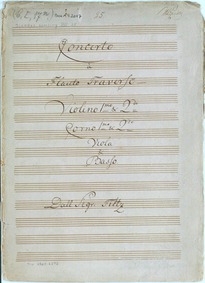 55
Concerto
a
Flauto Traverso
Violino 1mo & 2do
Corno 1mo & 2do
Viola
Basso
Dall Sigr. Filtz